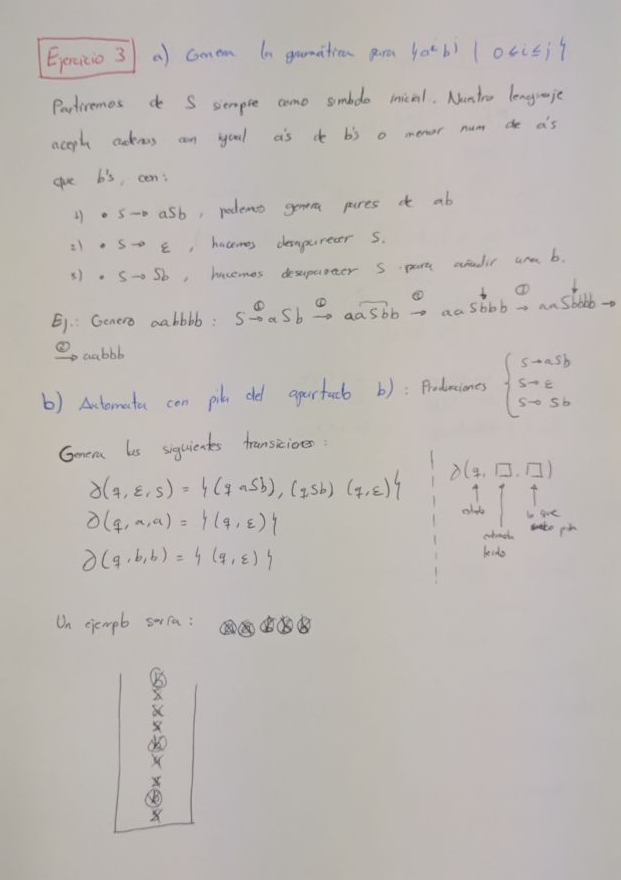 Ejercicio 3 a) Genera la gramática para { aⁱ bʲ | 0 ≤ i ≤ j }
Partiremos de S siempre como simbolo inicial. Nuestro lenguaje
acepta cadenas con igual a's de b's o menor num de a's
que b's, con:
1) • S → aSb, podemos genera pares de ab
2) • S → ε, hacemos desaparecer S.
3) • S → Sb, hacemos desaparecer S para añadir una b.
Ej.: Genero aabbbb: S →① aSb →① aaSbb →③ aaSbbb →③ aaSbbbb →
→② aabbb
b) Automata con pila del apartado b): Producciones { S → aSb
S → ε
S → Sb
Genera las siguientes transiciones:
∂(q, ε, S) = { (q aSb), (q,Sb) (q,ε) }
∂(q, a, a) = { (q, ε) }
∂(q, b, b) = { (q, ε) }
∂(q, □, □)
estado
entrada
leido
lo que
pila
Un ejemplo sería: a a b b b